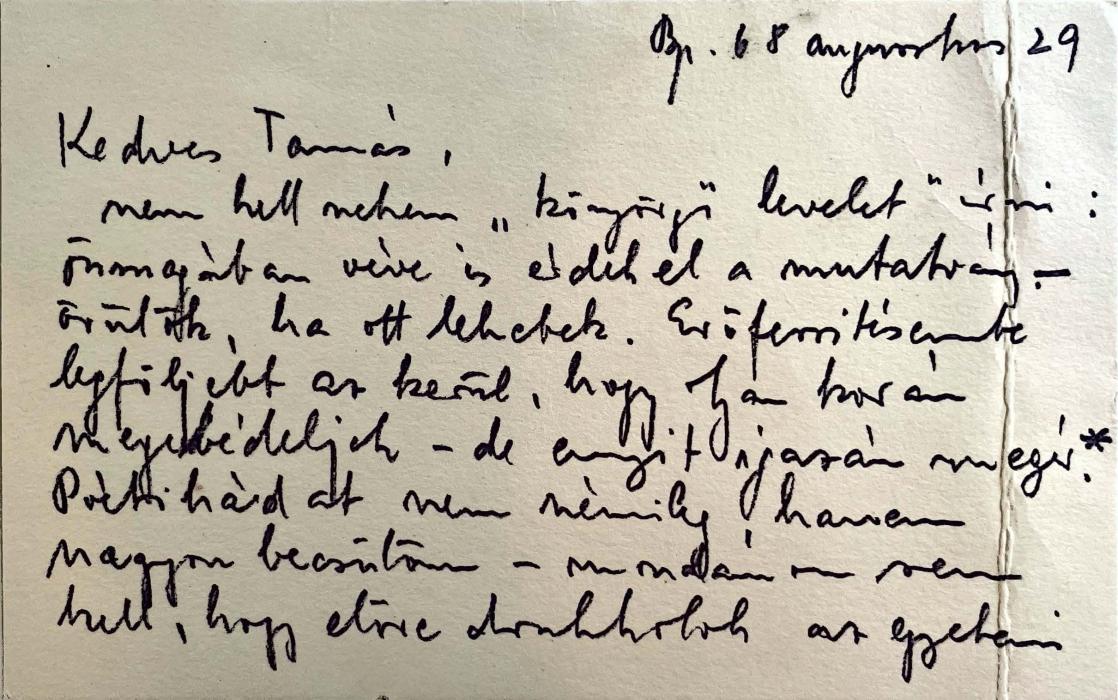 Bp. 68 augusztus 29
Kedves Tamás,
nem kell nekem „könyörgő levelet" írni:
önmagában véve is érdekel a mutatvány –
örülök, ha ott lehetek. Erőfeszítésembe
legföljebb az kerül, hogy olyan korán
megebédeljek – de ennyit igazán megér.*
nem némileg, hanem
nagyon becsülöm – mondanom sem
kell, hogy előre drukkolok az egyetemi